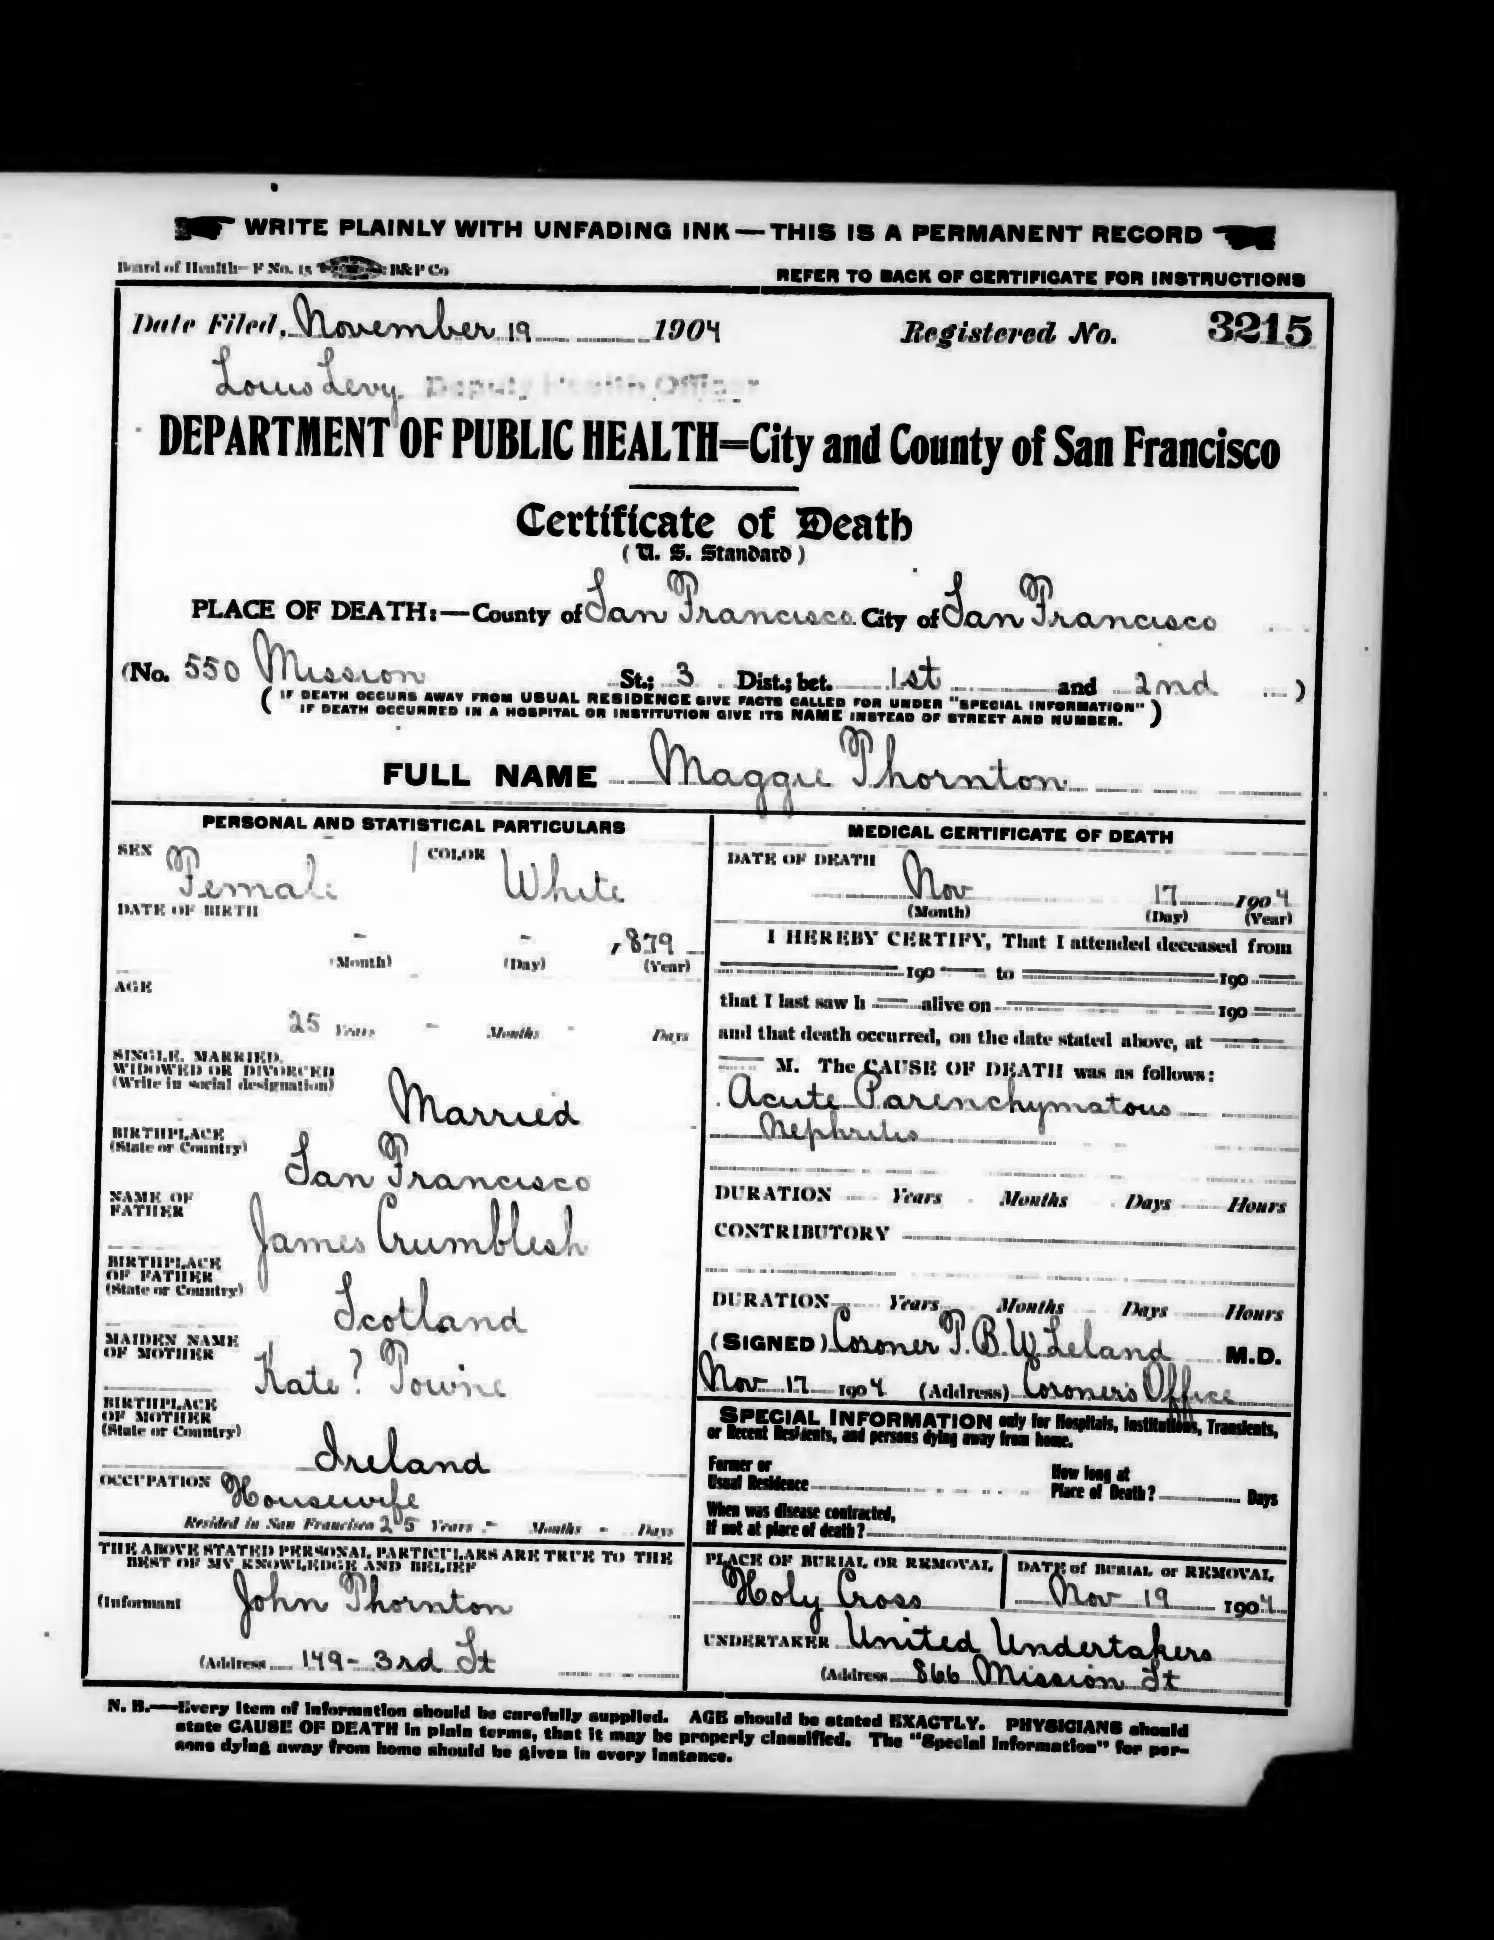 WRITE PLAINLY WITH UNFADING INK—THIS IS A PERMANENT RECORD
Board of Health—F No. 15 B&P Co
REFER TO BACK OF CERTIFICATE FOR INSTRUCTIONS
Date Filed, November 19 1904 Registered No. 3215
Louis Levy Deputy Health Officer
DEPARTMENT OF PUBLIC HEALTH=City and County of San Francisco
Certificate of Death
(U. S. Standard)
PLACE OF DEATH:—County of San Francisco City of San Francisco
(No. 550 Mission St.; 3 Dist.; bet. 1st and 2nd )
( IF DEATH OCCURS AWAY FROM USUAL RESIDENCE GIVE FACTS CALLED FOR UNDER "SPECIAL INFORMATION"
IF DEATH OCCURRED IN A HOSPITAL OR INSTITUTION GIVE ITS NAME INSTEAD OF STREET AND NUMBER. )
FULL NAME Maggie Thornton
PERSONAL AND STATISTICAL PARTICULARS
SEX Female COLOR White
DATE OF BIRTH
- - 1879
(Month) (Day) (Year)
AGE
25 Years - Months - Days
SINGLE, MARRIED,
WIDOWED OR DIVORCED
(Write in social designation)
Married
BIRTHPLACE
(State or Country)
San Francisco
NAME OF
FATHER
James Crumblish
BIRTHPLACE
OF FATHER
(State or Country)
Scotland
MAIDEN NAME
OF MOTHER
Kate ? Towne
BIRTHPLACE
OF MOTHER
(State or Country)
Ireland
OCCUPATION Housewife
Resided in San Francisco 25 Years - Months - Days
THE ABOVE STATED PERSONAL PARTICULARS ARE TRUE TO THE
BEST OF MY KNOWLEDGE AND BELIEF
(Informant John Thornton
(Address 149-3rd St
MEDICAL CERTIFICATE OF DEATH
DATE OF DEATH
Nov 17 1904
(Month) (Day) (Year)
I HEREBY CERTIFY, That I attended deceased from
190 to 190
that I last saw h alive on 190
and that death occurred, on the date stated above, at
M. The CAUSE OF DEATH was as follows:
Acute Parenchymatous
Nephritis
DURATION Years Months Days Hours
CONTRIBUTORY
DURATION Years Months Days Hours
(SIGNED) Coroner T. B. W. Leland M.D.
Nov 17 1904 (Address) Coroner's Office
SPECIAL INFORMATION only for Hospitals, Institutions, Transients,
or Recent Residents, and persons dying away from home.
Former or
Usual Residence
How long at
Place of Death? Days
When was disease contracted,
If not at place of death?
PLACE OF BURIAL OR REMOVAL
Holy Cross
DATE of BURIAL or REMOVAL
Nov 19 1904
UNDERTAKER United Undertakers
(Address 866 Mission St
N. B.—Every item of information should be carefully supplied. AGE should be stated EXACTLY. PHYSICIANS should
state CAUSE OF DEATH in plain terms, that it may be properly classified. The "Special Information" for per-
sons dying away from home should be given in every instance.